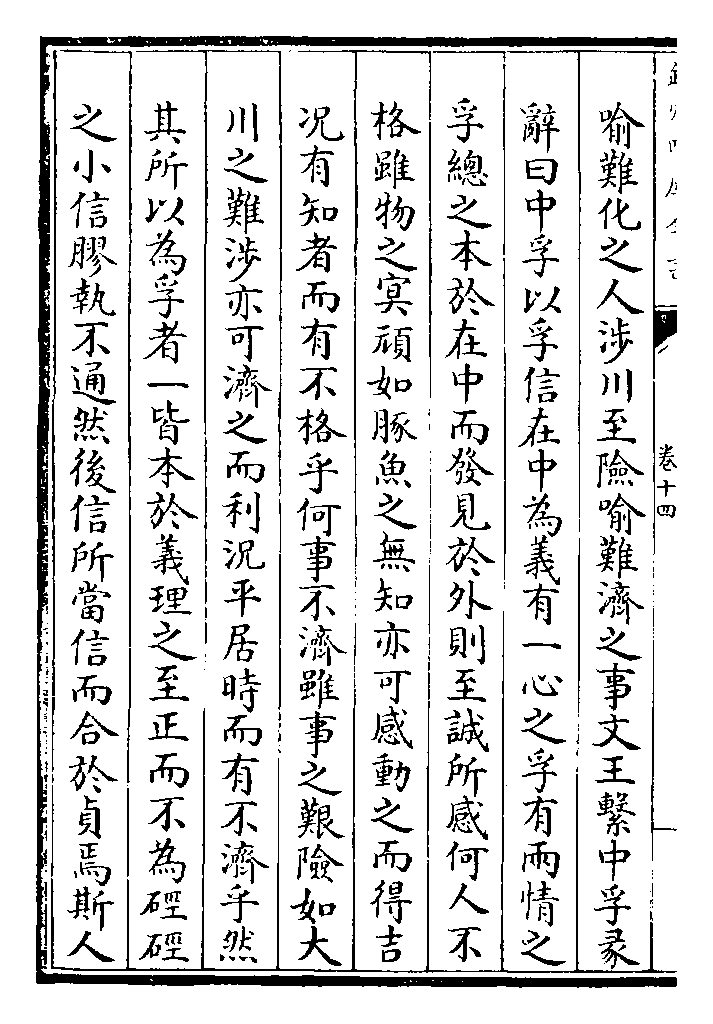 卷十四
喻難化之人涉川至險喻難濟之事文王繫中孚彖
辭曰中孚以孚信在中為義有一心之孚有兩情之
孚總之本於在中而發見於外則至誠所感何人不
格雖物之冥頑如豚魚之無知亦可感動之而得吉
况有知者而有不格乎何事不濟雖事之艱險如大
川之難涉亦可濟之而利况平居時而有不濟乎然
其所以為孚者一皆本於義理之至正而不為硜硜
之小信膠執不通然後信所當信而合於貞焉斯人